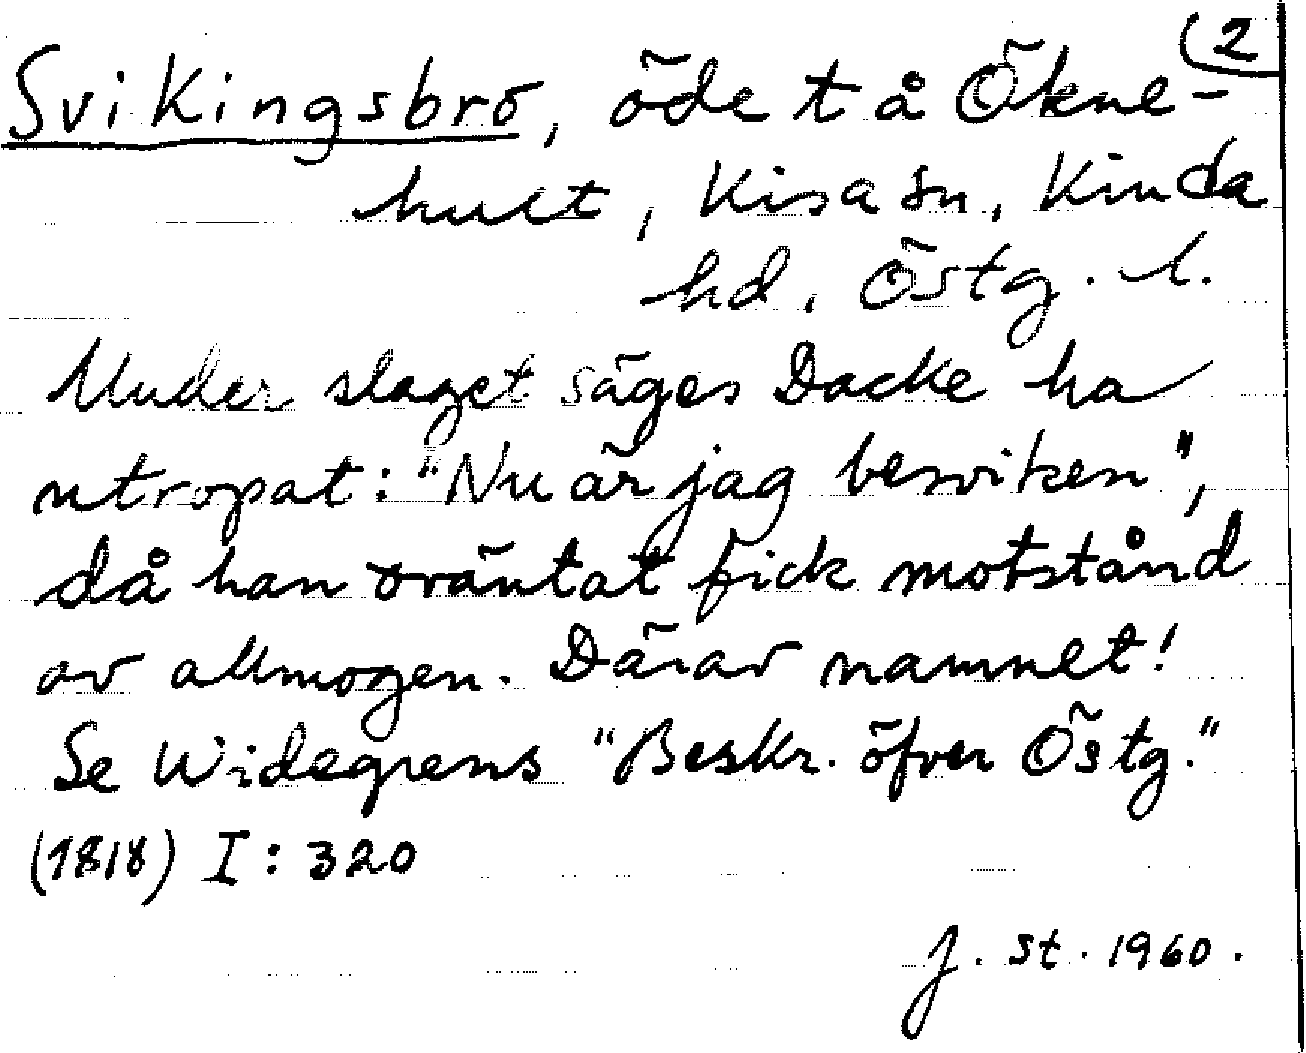 2
Svikingsbro, öde t å Ökne-
hult, Kisa sn, Kinda
hd, Östg. l.
Under slaget säges Dacke ha
utropat: "Nu är jag besviken",
då han oväntat fick motstånd
av allmogen. Därav namnet!
Se Widegrens "Beskr. öfver Östg."
(1818) I: 320
J. St. 1960.